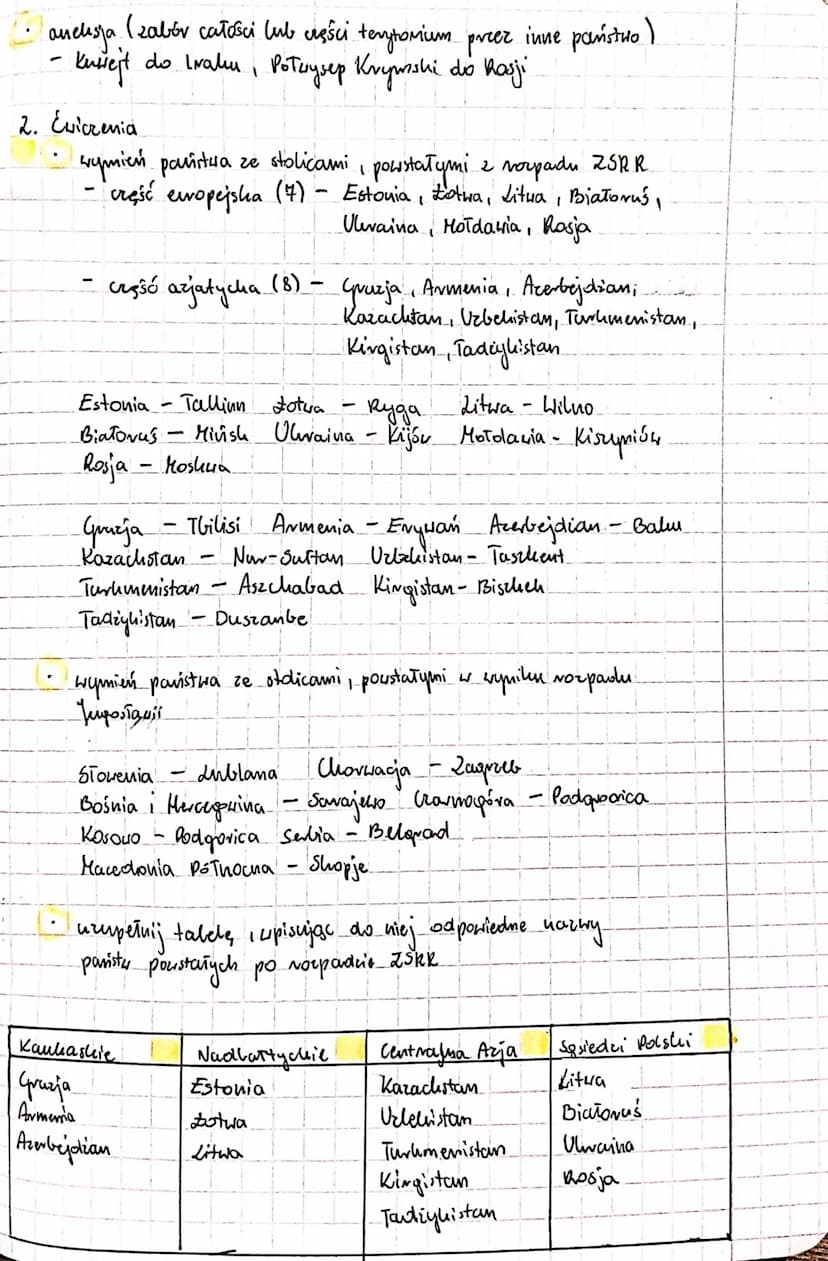 aneksja (zabór całości lub części terytorium przez inne państwo)
- Kuwejt do Iraku, Półwysep Krymski do Rosji
2. Ćwiczenia
wymień państwa ze stolicami, powstałymi z rozpadu ZSRR
- część europejska (7) - Estonia, Łotwa, Litwa, Białoruś,
Ukraina, Mołdawia, Rosja
- część azjatycka (8) - Gruzja, Armenia, Azerbejdżan,
Kazachstan, Uzbekistan, Turkmenistan,
Kirgistan, Tadżykistan
Estonia - Tallinn Łotwa - Ryga Litwa - Wilno
Białoruś - Mińsk Ukraina - Kijów Mołdawia - Kiszyniów
Rosja - Moskwa
Gruzja - Tbilisi Armenia - Erywań Azerbejdżan - Baku
Kazachstan - Nur-Sułtan Uzbekistan - Taszkent
Turkmenistan - Aszchabad Kirgistan - Biszkek
Tadżykistan - Duszanbe
wymień państwa ze stolicami, powstałymi w wyniku rozpadu
Jugosławii
Słowenia - Lublana Chorwacja - Zagrzeb
Bośnia i Hercegowina - Sarajewo Czarnogóra - Podgorica
Kosowo - Podgorica Serbia - Belgrad
Macedonia Północna - Skopje
uzupełnij tabelę, wpisując do niej odpowiedne nazwy
państw powstałych po rozpadzie ZSRR
Kaukaskie Nadbałtyckie Centralna Azja Sąsiedzi Polski
Gruzja Estonia Kazachstan Litwa
Armenia Łotwa Uzbekistan Białoruś
Azerbejdżan Litwa Turkmenistan Ukraina
Kirgistan Rosja
Tadżykistan